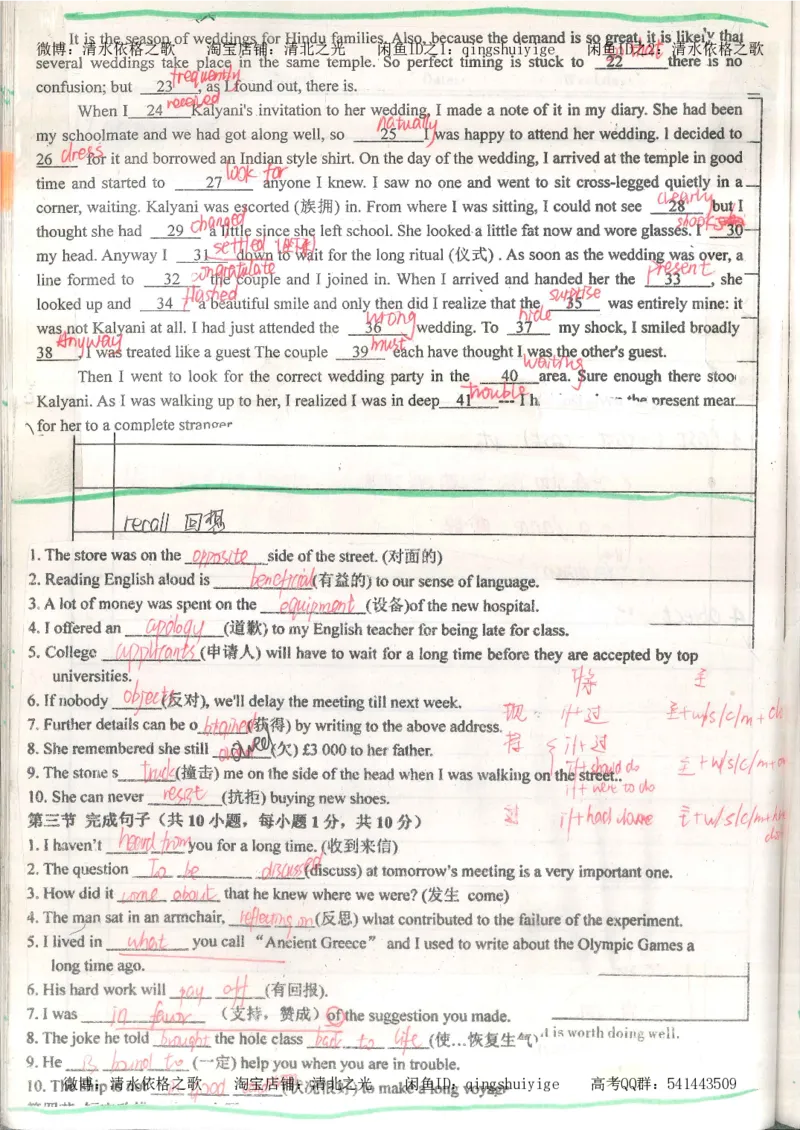 It is the season of weddings for Hindu families. Also, because the demand is so great, it is likely that
微博：清水依格之歌 淘宝店铺：清北之光 闲鱼ID之1：qingshuiyige 闲鱼ID之2：清水依格之歌
several weddings take place in the same temple. So perfect timing is stuck to 22 there is no
confusion; but 23 frequently, as I found out, there is.
When I 24 received Kalyani's invitation to her wedding, I made a note of it in my diary. She had been
my schoolmate and we had got along well, so 25 naturally I was happy to attend her wedding. I decided to
26 dress for it and borrowed an Indian style shirt. On the day of the wedding, I arrived at the temple in good
time and started to 27 look for anyone I knew. I saw no one and went to sit cross-legged quietly in a
corner, waiting. Kalyani was escorted (族拥) in. From where I was sitting, I could not see 28 clearly but I
thought she had 29 changed a little since she left school. She looked a little fat now and wore glasses. I 30 shook
my head. Anyway I 31 settled down to wait for the long ritual (仪式). As soon as the wedding was over, a
line formed to 32 congratulate the couple and I joined in. When I arrived and handed her the 33 present, she
looked up and 34 flashed a beautiful smile and only then did I realize that the 35 surprise was entirely mine: it
was not Kalyani at all. I had just attended the 36 wrong wedding. To 37 hide my shock, I smiled broadly
38 Anyway I was treated like a guest The couple 39 must each have thought I was the other's guest.
Then I went to look for the correct wedding party in the 40 waiting area. Sure enough there stood
Kalyani. As I was walking up to her, I realized I was in deep 41 trouble --- I h the present mean
for her to a complete stranger
recall 回想
1. The store was on the opposite side of the street. (对面的)
2. Reading English aloud is beneficial (有益的) to our sense of language.
3. A lot of money was spent on the equipment (设备)of the new hospital.
4. I offered an apology (道歉) to my English teacher for being late for class.
5. College applicants (申请人) will have to wait for a long time before they are accepted by top
universities.
将 至
6. If nobody objects (反对), we'll delay the meeting till next week.
现： if+过
7. Further details can be obtained (获得) by writing to the above address.
8. She remembered she still owed (欠) £3 000 to her father.
将 if+过
9. The stone struck (撞击) me on the side of the head when I was walking on the street..
if+should do
if+were to do
10. She can never resist (抗拒) buying new shoes.
过 if+had done
第三节 完成句子（共 10 小题，每小题 1 分，共 10 分）
1. I haven't heard from you for a long time. (收到来信)
2. The question to be discussed (discuss) at tomorrow's meeting is a very important one.
3. How did it come about that he knew where we were? (发生 come)
4. The man sat in an armchair, reflecting on (反思) what contributed to the failure of the experiment.
5. I lived in what you call “Ancient Greece” and I used to write about the Olympic Games a
long time ago.
6. His hard work will pay off (有回报).
7. I was in favor （支持，赞成）of the suggestion you made.
8. The joke he told brought the hole class back to life (使…恢复生气)
it is worth doing well.
9. He is bound to (一定) help you when you are in trouble.
10. The ship is not in good (状况很好) to make a long voyage
微博：清水依格之歌 淘宝店铺：清北之光 闲鱼ID：qingshuiyige 高考QQ群：541443509